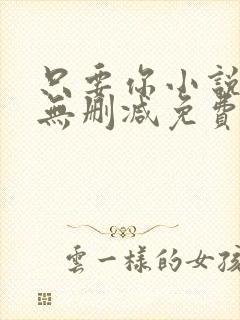 只要你小說
無刪減免費
雲一樣的女孩